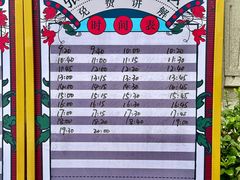 免费讲解
时间表
9:20 9:40 10:00 10:20
10:40 11:00 11:15 11:30
11:45 12:00 12:20 12:40
13:00 13:15 13:30 13:45
14:00 14:15 14:30 14:45
15:00 15:15 15:30 15:45
16:00 16:15 16:30 16:45
17:00 17:15 17:30 17:45
18:00 18:20 18:40 19:00
19:30 20:00